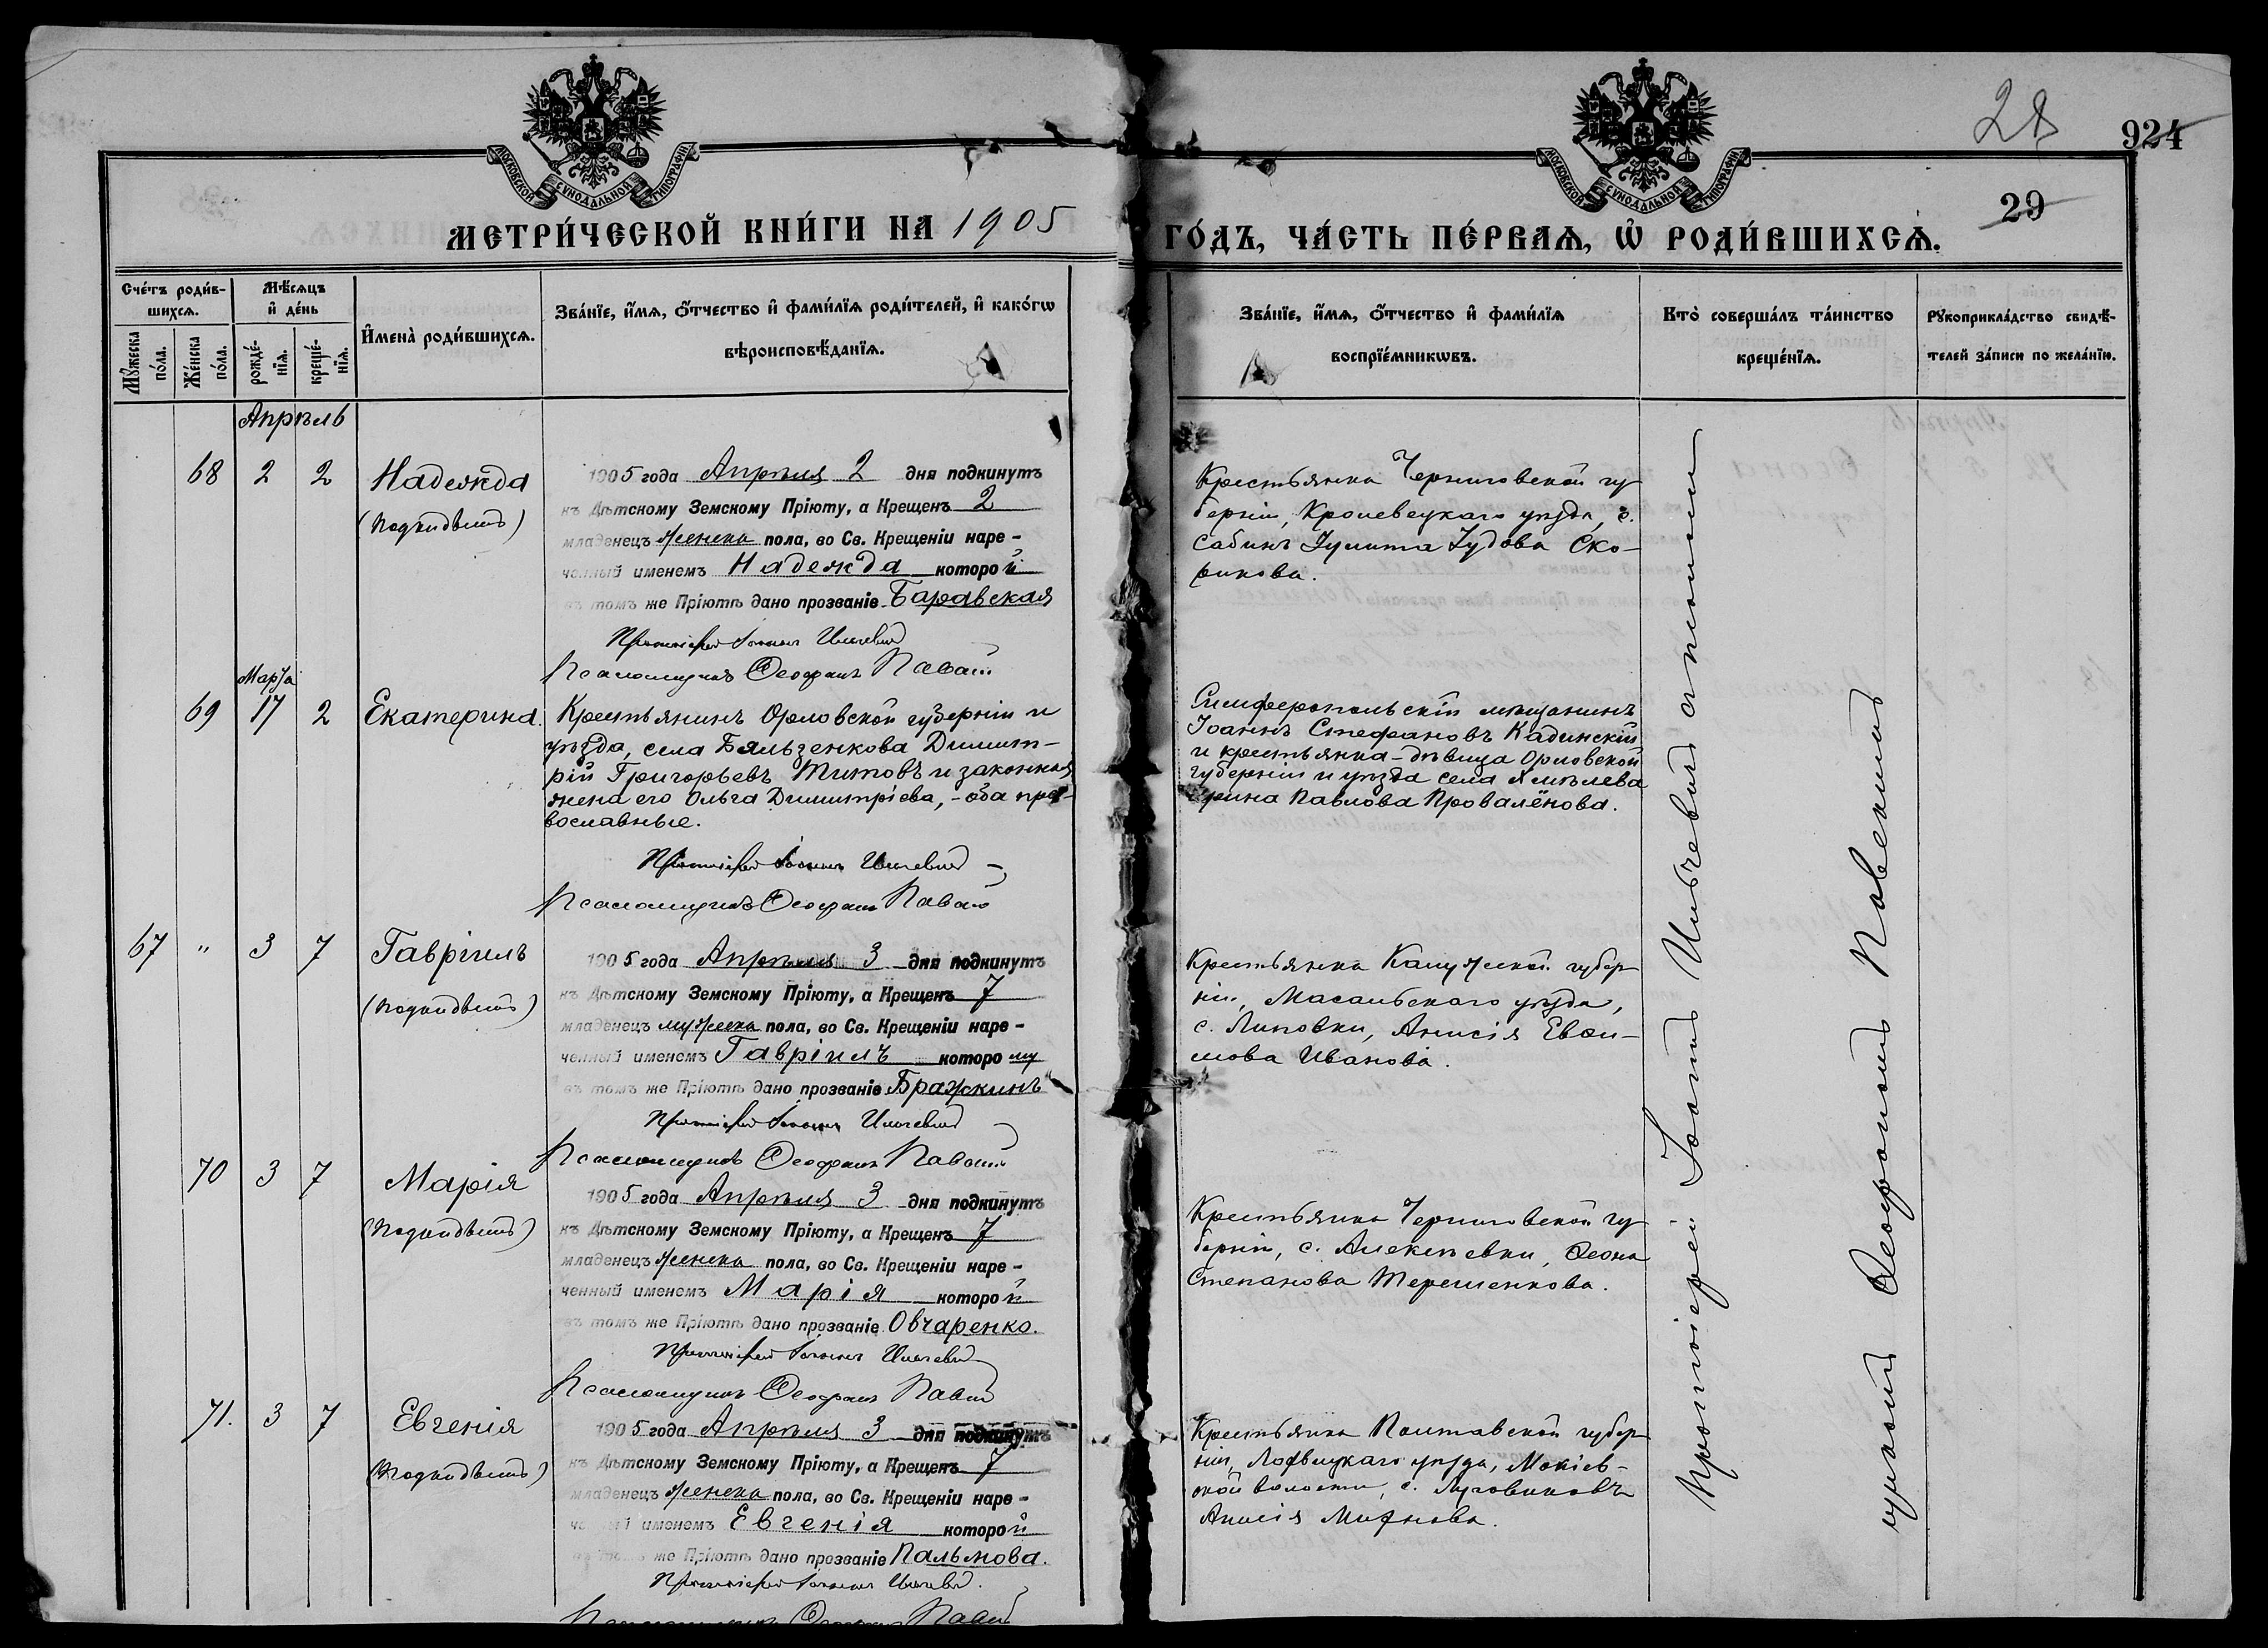 МОСКОВСКОЙ СѴНОДАЛЬНОЙ ТИПОГРАФІИ
МОСКОВСКОЙ СѴНОДАЛЬНОЙ ТИПОГРАФІИ
28
924
29
МЕТРИ́ЧЕСКОЙ КНИ́ГИ НА 1905
ГО́ДЪ, ЧА́СТЬ ПЕ́РВАѦ, Ѡ҆ РОДИ́ВШИХСѦ.
Сче́тъ роди́в-
шихсѧ.
Мꙋ́жеска по́ла.
Же́нска по́ла.
Мѣ́сѧцъ
и҆ де́нь
рожде́-нїѧ.
креще́-нїѧ.
И҆мена̀ роди́вшихсѧ.
Зва́нїе, и҆́мѧ, ѻ҆́тчество и҆ фами́лїѧ роди́телей, и҆ како́гѡ
вѣроисповѣ́данїѧ.
Зва́нїе, и҆́мѧ, ѻ҆́тчество и҆ фами́лїѧ
воспрїе́мникѡвъ.
Кто̀ соверша́лъ та́инство
креще́нїѧ.
Рꙋкоприкла́дство свидѣ́-
телей за́писи по жела́нїю.
Апрѣль
68 2 2 Надежда
(подкидышъ)
1905 года Апрѣля 2 дня подкинутъ
къ Дѣтскому Земскому Пріюту, а Крещенъ 2
младенецъ женска пола, во Св. Крещеніи наре-
ченный именемъ Надежда которой
въ томъ же Пріютѣ дано прозваніе Баравская
Протоіерей Іоаннъ Ильчевич
Псаломщикъ Ѳеофанъ
Крестьянка Черниговской гу
берніи, Кролевецкаго уѣзда, с.
Сабинъ Іулита Іудова Ско-
рикова.
Марта
69 17 2 Екатерина.
Крестьянинъ Орловской губерніи и
уѣзда, села Бяльзенкова Димит-
рій Григорьевъ Титовъ и законная
жена его Ольга Димитріева, - оба пра-
вославные.
Протоіерей Іоаннъ Ильчевич
Псаломщикъ Ѳеофанъ
Симферопольскій мѣщанинъ
Іоаннъ Стефановъ Кадинскій
и крестьянка-дѣвица Орловской
губерніи и уѣзда села Хмѣлева
Ирина Павлова Провалёнова.
67 " 3 7 Гавріилъ
(подкидышъ)
1905 года Апрѣля 3 дня подкинутъ
къ Дѣтскому Земскому Пріюту, а Крещенъ 7
младенецъ мужеска пола, во Св. Крещеніи наре-
ченный именемъ Гавріилъ которому
въ томъ же Пріютѣ дано прозваніе Бражкинъ
Протоіерей Іоаннъ Ильчевич
Псаломщикъ Ѳеофанъ
Крестьянка Калужской губер
ніи, Масальскаго уѣзда,
с. Липовки, Анисія Евѳи-
мова Иванова.
70 3 7 Марія
(подкидышъ)
1905 года Апрѣля 3 дня подкинутъ
къ Дѣтскому Земскому Пріюту, а Крещенъ 7
младенецъ женска пола, во Св. Крещеніи наре-
ченный именемъ Марія которой
въ томъ же Пріютѣ дано прозваніе Овчаренко.
Протоіерей Іоаннъ Ильчевич
Псаломщикъ Ѳеофанъ
Крестьянка Черниговской гу
берніи, с. Алексѣевки, Ѳеона
Степанова Терешенкова.
71. 3 7 Евгенія
(подкидышъ)
1905 года Апрѣля 3 дня подкинутъ
къ Дѣтскому Земскому Пріюту, а Крещенъ 7
младенецъ женска пола, во Св. Крещеніи наре-
ченный именемъ Евгенія которой
въ томъ же Пріютѣ дано прозваніе Пальмова.
Протоіерей Іоаннъ Ильчевич.
Псаломщикъ Ѳеофанъ
Крестьянка Полтавской губер
ніи, Лофвицкаго уѣзда, Мокіев-
ской волости, с. Луговиковъ
Анисія
Протоіерей Іоаннъ Ильчевичъ съ псалом-
щикомъ Ѳеофаномъ